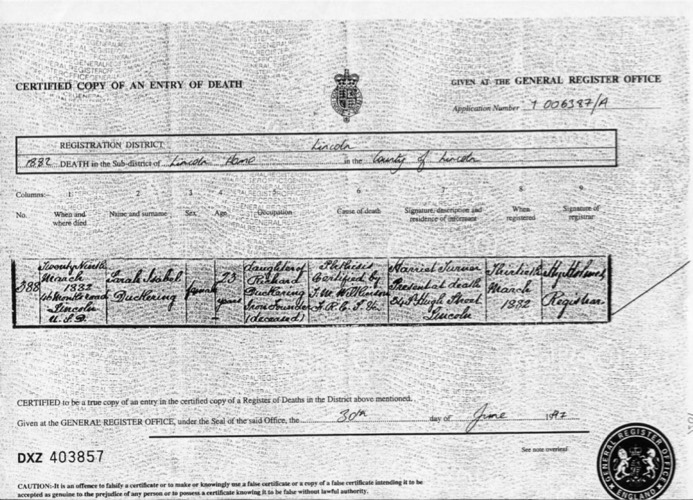 CERTIFIED COPY OF AN ENTRY OF DEATH
GIVEN AT THE GENERAL REGISTER OFFICE
Application Number
REGISTRATION DISTRICT Lincoln
1882 DEATH in the Sub-district of Lincoln Home in the County of Lincoln
Columns:- 1 2 3 4 5 6 7 8 9
No. When and where died Name and surname Sex Age Occupation Cause of death Signature, description and residence of informant When registered Signature of registrar
388
Twenty Ninth
March
1882
Lincoln
U.S.D.
Sarah Isabel
Duckering
Female
23
years
Daughter of
Richard
Duckering
Iron Founder
(deceased)
Phthisis
Certified by
Harriet Turner
Present at death
High Street
Lincoln
Thirtieth
March
1882
Registrar
CERTIFIED to be a true copy of an entry in the certified copy of a Register of Deaths in the District above mentioned.
Given at the GENERAL REGISTER OFFICE, under the Seal of the said Office, the 30th day of June 1997
DXZ 403857
See note overleaf
CAUTION:-It is an offence to falsify a certificate or to make or knowingly use a false certificate or a copy of a false certificate intending it to be
accepted as genuine to the prejudice of any person or to possess a certificate knowing it to be false without lawful authority.
GENERAL REGISTER OFFICE